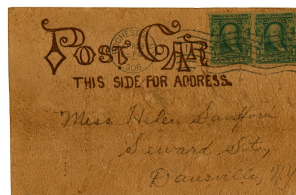 Post Card
THIS SIDE FOR ADDRESS.
Miss Helen Sanform
Seward St.,
Dansville, N.Y.